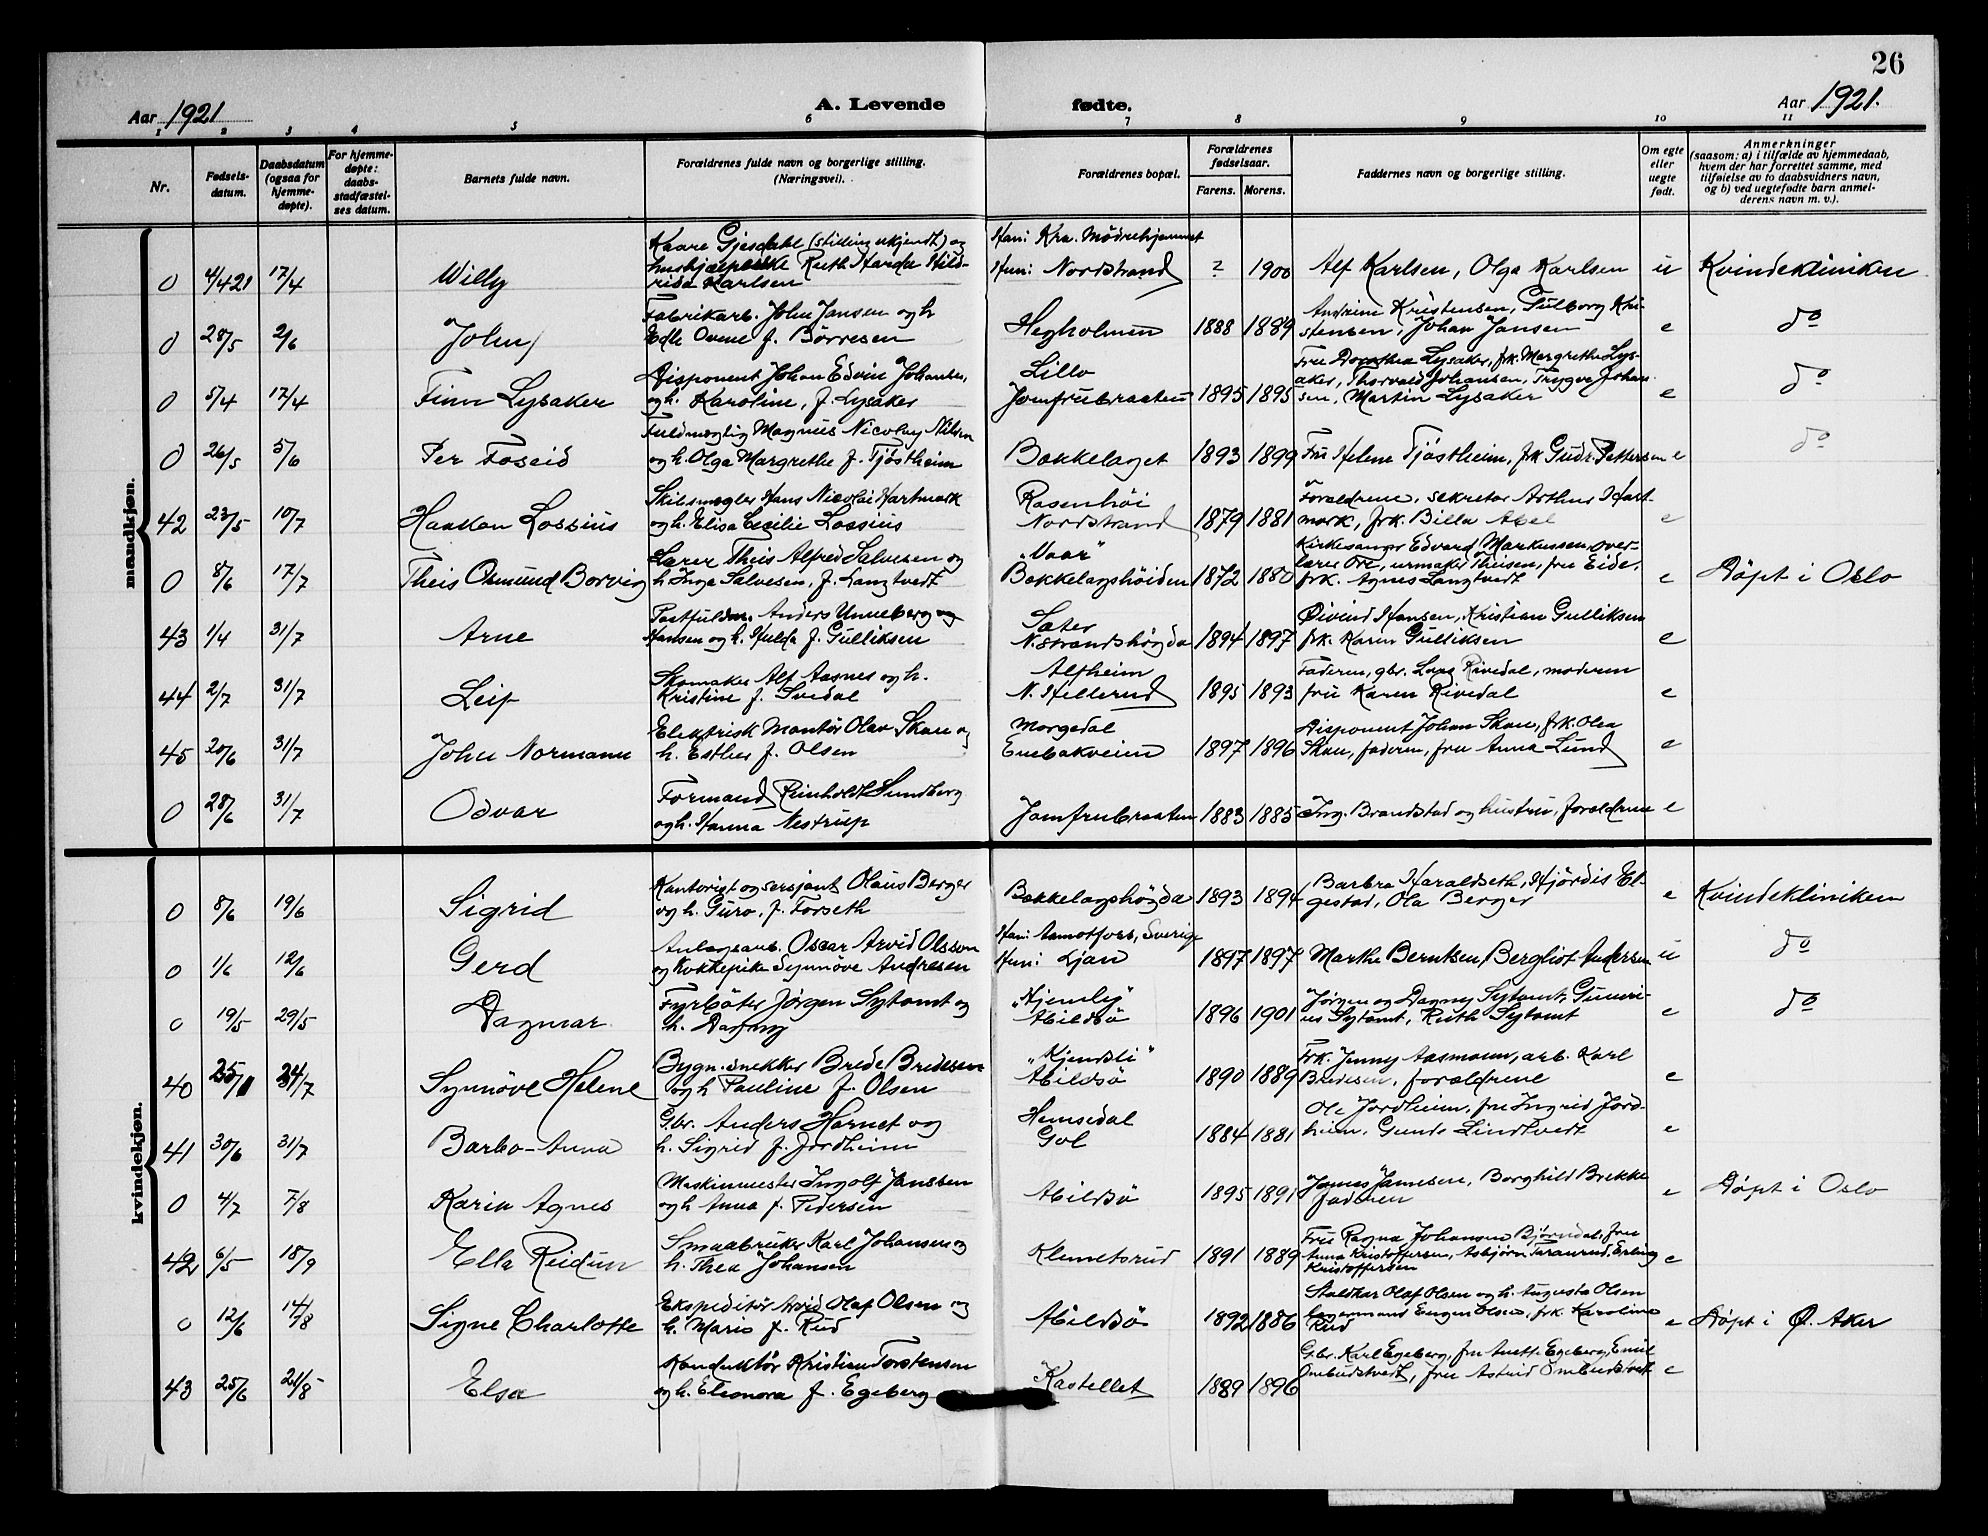 26
Aar 1921
A. Levende fødte.
Aar 1921.
1 2 3 4 5 6 7 8 9 10 11
Nr.
Fødsels-
datum.
Daabsdatum
(ogsaa for
hjemme-
døpte).
For hjemme-
døpte:
daabs-
stadfæstel-
ses datum.
Barnets fulde navn.
Forældrenes fulde navn og borgerlige stilling.
(Næringsvei).
Forældrenes bopæl.
Forældrenes
fødselsaar.
Farens. Morens.
Faddernes navn og borgerlige stilling.
Om egte
eller
uegte
født.
Anmerkninger
(saasom: a) i tilfælde av hjemmedaab,
hvem der har forrettet samme, med
tilføielse av to daabsvidners navn,
og b) ved uegtefødte barn anmel-
derens navn m. v.).
mandkjøn.
Kaare Gjesdahl (stilling ukjendt) og
Han: Kra. Mødrehjemmet
0 4/4 21 17/4 Willy Ruth Harda Hild-
Hun: Nordstrand ? 1900 Alf Karlsen, Olga Karlsen u Kvindekliniken
Karlsen
Fabrikarb. John Jansen og h
Kristensen, Gulborg Kri-
0 28/5 2/6 John f. Børresen Hegholmen 1888 1889 stensen, Johan Jansen e do
Disponent Johan Edvin Johansen,
Lillo
Fru Dorothea Lysaker, frk. Margrethe Lys-
0 5/4 17/4 Finn Lysaker og h. Karoline, f. Lysaker Jomfrubraaten 1895 1895 aker, Thorvald Johansen, Trygve Johan- e do
sen, Martin Lysaker
Fuldmægtig Magnus Nicolay Nilsen
0 26/5 5/6 Per Foseid og h. Olga Margrethe f. Tjøstheim Bækkelaget 1893 1899 Fru Helene Tjøstheim, frk Gudr. Pettersen e do
Skibsmægler Hans Nicolai Hartmark
Rosenhøi
Forældrene, sekretær Arthur Hart-
42 23/5 10/7 Haakon Lossius og h. Elisa Cecilie Lossius Nordstrand 1879 1881 mark, frk. Billa Abel e
Lærer Theis Alfred Salvesen og
"Vaar"
Kirkesanger Edvard Markussen, over-
0 8/6 17/7 Theis Osmund Borvig h. Inga Salvesen, f. Langtvedt Bækkelagshøiden 1872 1880 lærer Ore, urmaker Theisen, fru Eide, e Døpt i Oslo
frk. Agnes Langtvedt
Postfuldm. Anders Unneberg og
Sæter
Øivind Hansen, Kristian Gulliksen
43 1/4 31/7 Arne Hansen og h. Hulda f. Gulliksen N.strandshøgda 1894 1897 frk. Karen Gulliksen e
Skomaker Alf Aasnes og h.
Alfheim
Faderen, gbr. Lars Rivedal, moderen
44 2/7 31/7 Leif Kristine f. Svedal N. Hellerud 1895 1893 fru Karen Rivedal e
Elektrisk Montør Olav Skau og
Morgedal
Disponent Johan Skau, frk. Olea
45 20/6 31/7 John Normann h. Esther f. Olsen Enebakveien 1897 1896 Skau, faderen, fru Anna Lund e
Formand Reinholdt Sundberg
0 28/6 31/7 Odvar og h. Hanna Nestrup Jomfrubraaten 1883 1885 Ing. Brandstad og hustru, forældrene e
kvindekjøn.
Kontorist og sersjant Olaus Berger
Barbra Haraldseth, Hjørdis El-
0 8/6 19/6 Sigrid og h. Guro, f. Forseth Bækkelagshøgda 1893 1894 gestad, Ola Berger e Kvindekliniken
Anlægsarb. Oscar Arvid Olsson
Han: Aamotfors, Sverige
0 1/6 12/6 Gerd og Kokkepike Synnøve Andresen Hun: Ljan 1897 1897 Marthe Berntsen, Bergliot Andersen u do
Fyrbøter Jørgen Sytomt og
"Hjemly"
Jørgen og Dagny Sytomt,
0 19/5 29/5 Dagmar h. Dagny Abildsø 1896 1901 Sytomt, Ruth Sytomt e do
Bygn.snekker Brede Bredesen
"Kjendsli"
Frk. Jenny Aasmoun, arb. Karl
40 24/7 Synnøve Helene og h Pauline f. Olsen Abildsø 1890 1889 Bredesen, forældrene e
Gbr. Anders Harnet og
Hemsedal
Ole Jordheim, fru Ingrid Jord-
41 30/6 31/7 Barbo-Anna h. Sigrid f. Jordheim Gol 1884 1881 heim, Gunde Lindtvedt e
Maskinmester Ingolf Janssen
James Jamesen, Borghild Brekke
0 4/7 7/8 Karin Agnes og h Anna f. Pedersen Abildsø 1895 1891 faderen e Døpt i Oslo
Smaabruker Karl Johansen og
Fru Ragna Johansen Bjørndal, fru
42 6/5 18/9 Ella Reidun h. Thea Johansen Klemetsrud 1891 1889 Anna Kristoffersen, Asbjørn Taraurud, Erling e
Kristoffersen
Ekspeditør Arvid Olaf Olsen og
Staldkar Olaf Olsen og h. Augusta Olsen
0 12/6 14/8 Signe Charlotte h. Marie f. Rud Abildsø 1892 1886 Eugen Olsen, frk. Karoline e Døpt i Ø. Aker
Rud
Konduktør Kristian Torstensen
Gbr. Karl Egeberg, fru Anette Egeberg, Emil
43 25/6 21/8 Elsa og h. Eleonora f. Egeberg Kastellet 1889 1896 Ombudstvedt, fru Astrid Ombudstvedt e